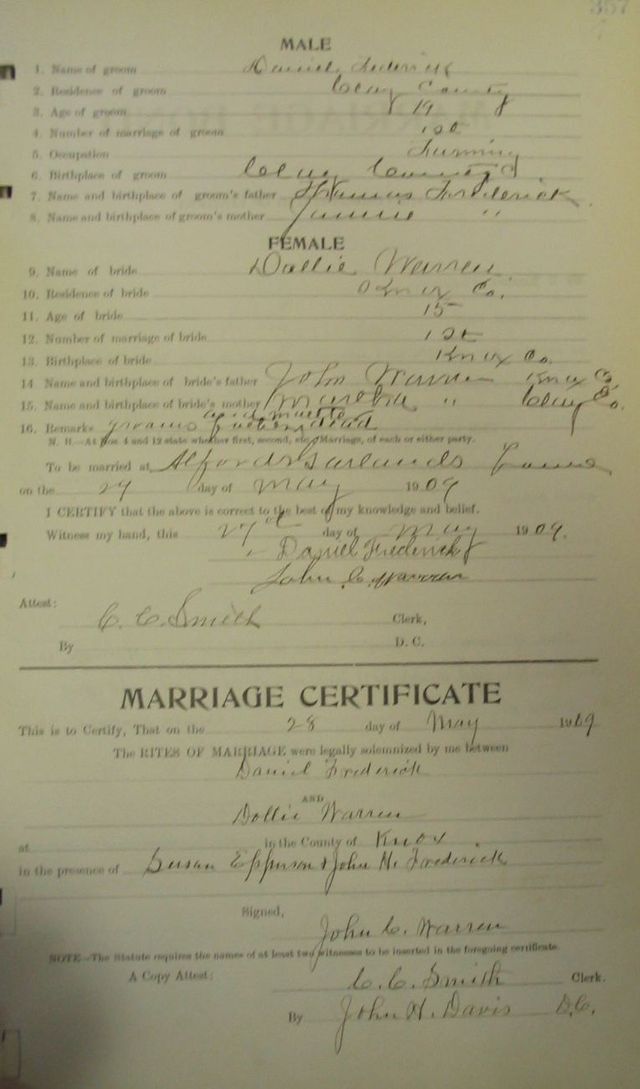 357
MALE
1. Name of groom Daniel Frederick
2. Residence of groom Clay County
3. Age of groom 19
4. Number of marriage of groom 1st
5. Occupation Farming
6. Birthplace of groom Clay County
7. Name and birthplace of groom's father Thomas Frederick
8. Name and birthplace of groom's mother Jennie "
FEMALE
9. Name of bride Dollie Warren
10. Residence of bride Knox Co.
11. Age of bride 15
12. Number of marriage of bride 1st
13. Birthplace of bride Knox Co
14 Name and birthplace of bride's father John Warren Knox Co.
15. Name and birthplace of bride's mother " Clay Co.
16. Remarks grooms father and mother dead
N. B.—At Nos. 4 and 12 state whether first, second, etc., Marriage, of each or either party.
To be married at Alford Garlands
on the 29 day of May 1909
I CERTIFY that the above is correct to the best of my knowledge and belief.
Witness my hand, this 27 day of May 1909.
Daniel Frederick
John C. Warren
Attest:
C. C. Smith Clerk,
By D. C.
MARRIAGE CERTIFICATE
This is to Certify, That on the 28 day of May 1909
The RITES OF MARRIAGE were legally solemnized by me between
Daniel Frederick
AND
Dollie Warren
at in the County of Knox.
in the presence of Susan Epperson & John H. Frederick
Signed,
John C. Warren
NOTE—The Statute requires the names of at least two witnesses to be inserted in the foregoing certificate.
A Copy Attest: C. C. Smith Clerk.
By John H. Davis D.C.